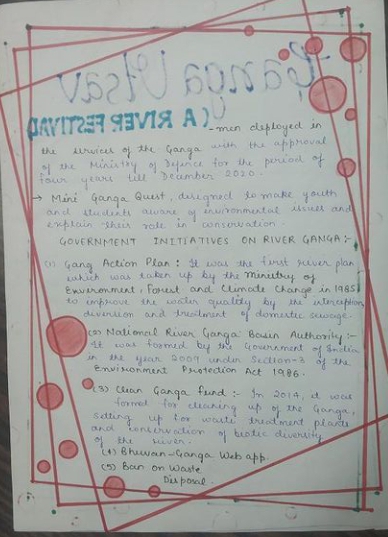 Ganga Utsav
(A RIVER FESTIVAL)
-men deployed in
the services of the Ganga with the approval
of the Ministry of Defence for the period of
four years till December 2020.
→ Mini Ganga Quest, designed to make youth
and students aware of environmental issues and
explain their role in conservation.
GOVERNMENT INITIATIVES ON RIVER GANGA:-
(1) Gang Action Plan : It was the first river plan
which was taken up by the Ministry of
Environment, Forest and Climate Change in 1985
to improve the water quality by the interception
diversion and treatment of domestic sewage.
(2) National River Ganga Basin Authority :-
It was formed by the Government of India
in the year 2009 under Section-3 of the
Environment Protection Act 1986.
(3) Clean Ganga Fund :- In 2014, it was
formed for cleaning up of the Ganga,
setting up for waste treatment plants
and conservation of biotic diversity
of the river.
(4) Bhuvan-Ganga Web app.
(5) Ban on Waste
Disposal.